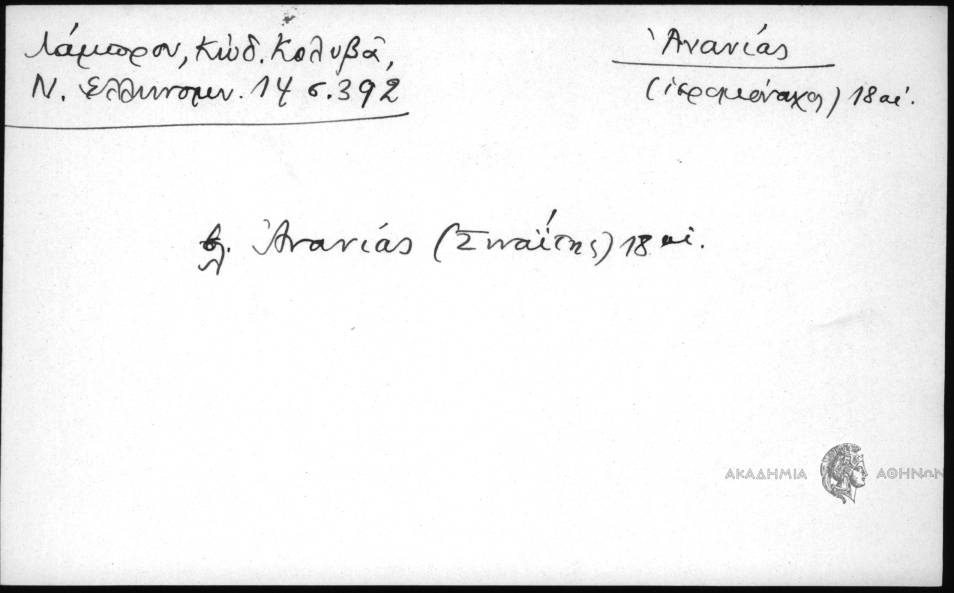 Λάμπρου, Κώδ. Κολυβᾶ,
Ν. Ἑλληνομν. 14 σ. 392
Ἀνανίας
(ἱερομόναχος) 18 αἰ.
βλ. Ἀνανίας (Σιναΐτης) 18 αἰ.
ΑΚΑΔΗΜΙΑ ΑΘΗΝΩΝ